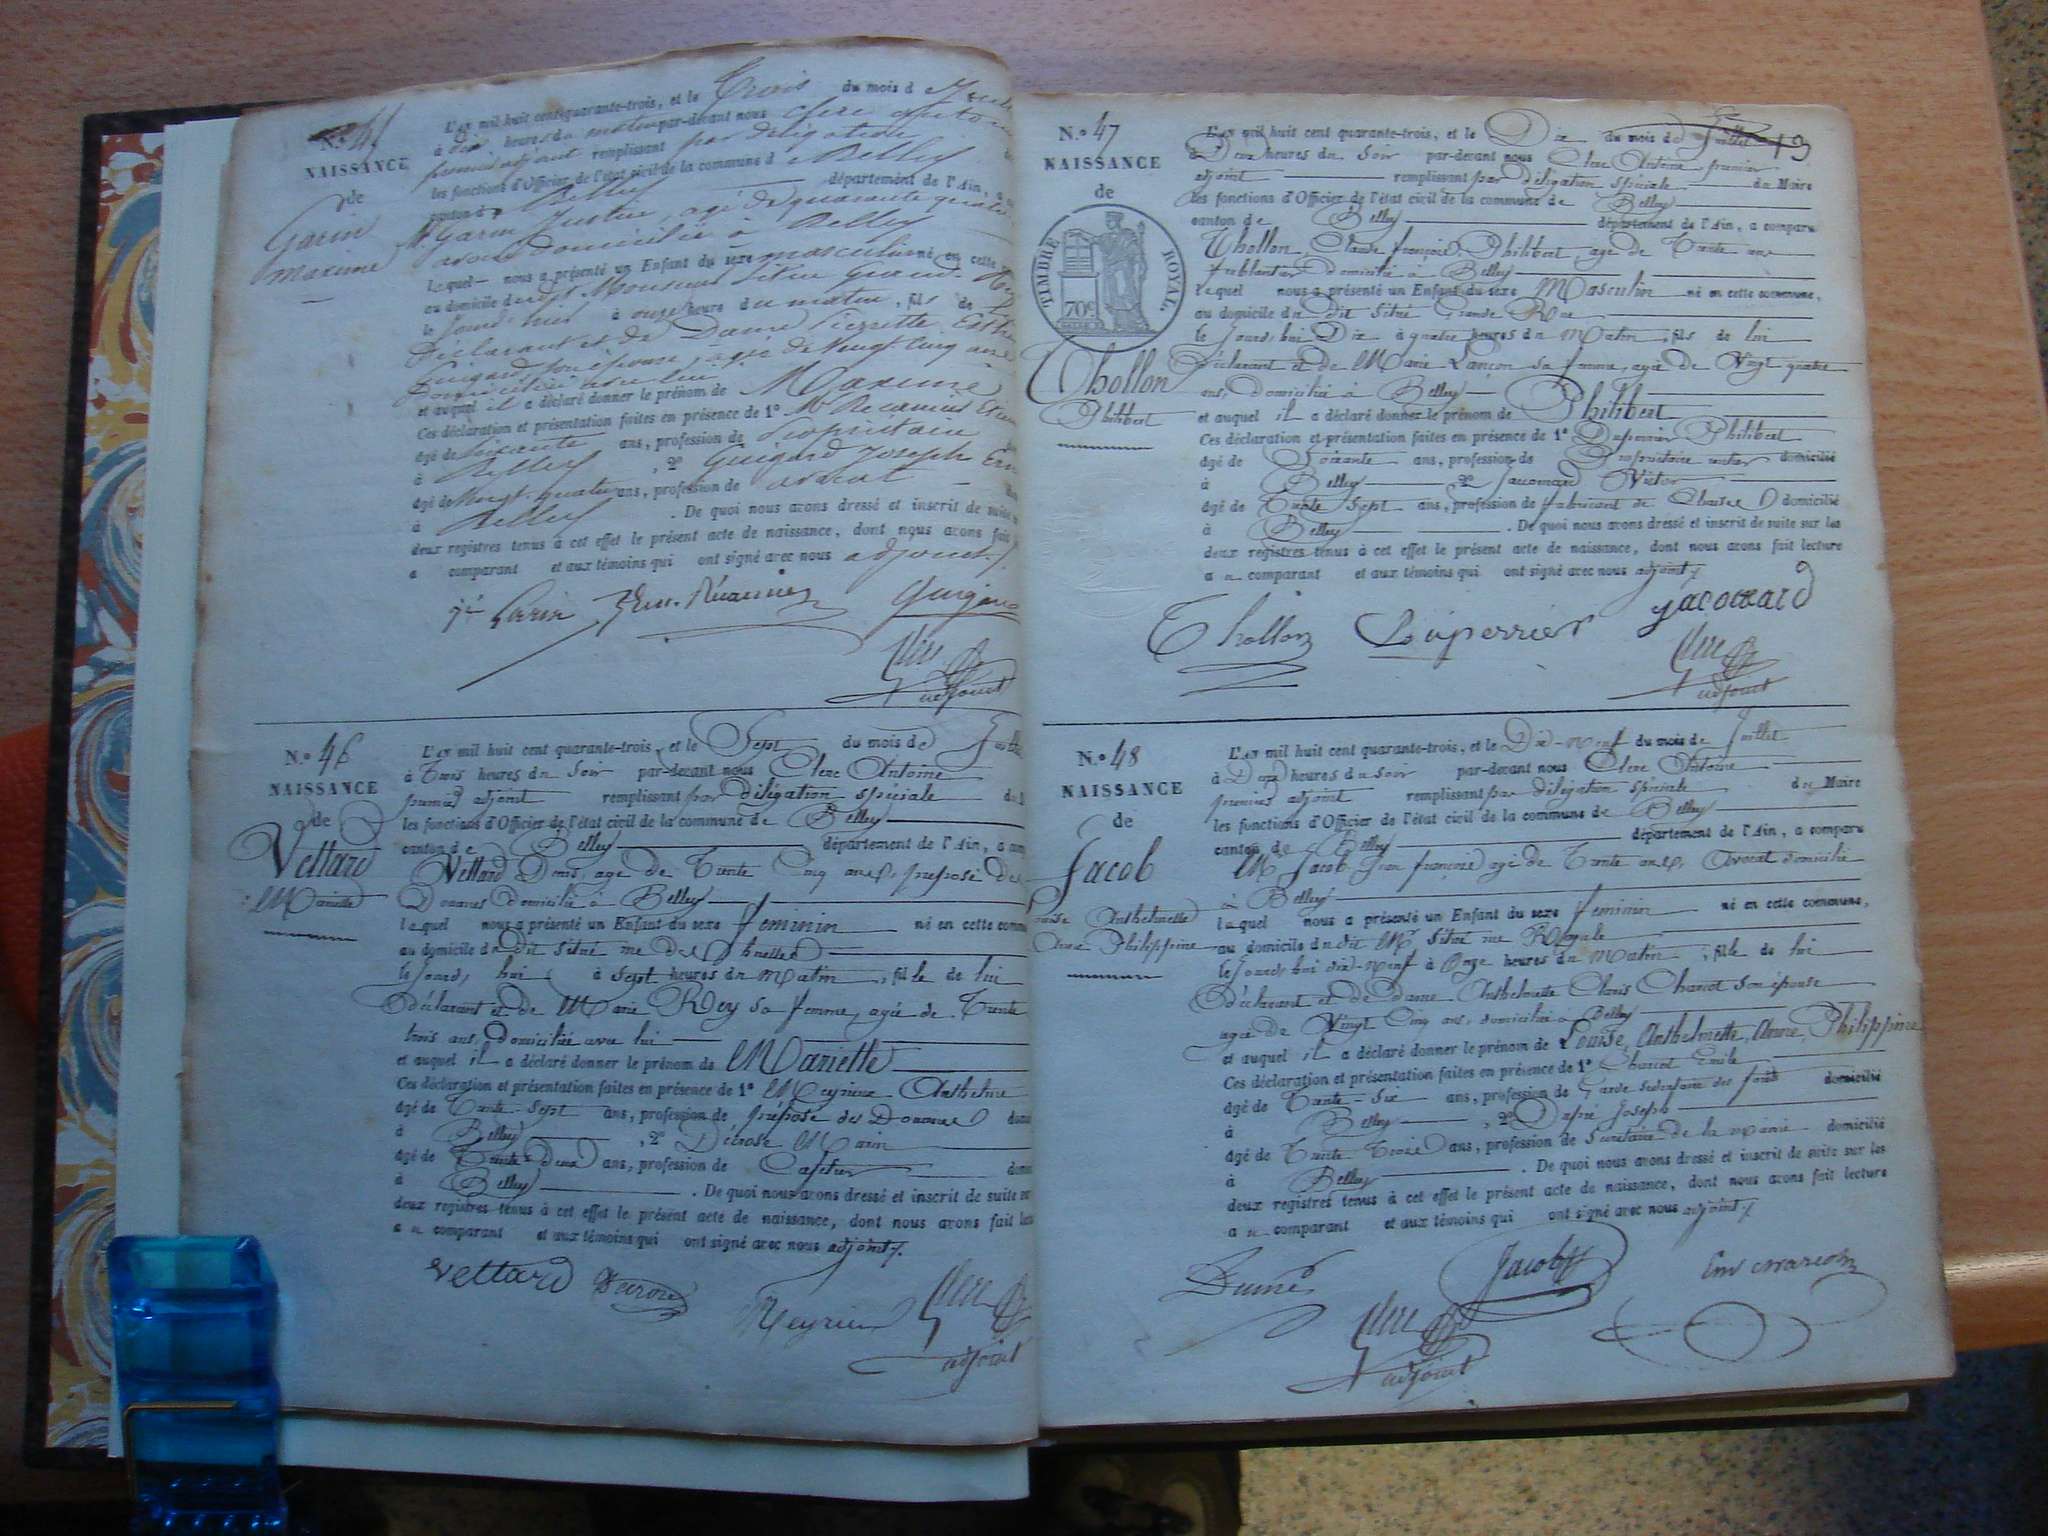 N.º 45
NAISSANCE
de
Garin
Maxime
L'an mil huit cent quarante-trois, et le Trois du mois de
à heures du matin par-devant nous Clerc Antoine
premier adjoint remplissant par délégation
les fonctions d'Officier de l'état civil de la commune d Belley
canton d Belley département de l'Ain, a
Mr Garin Justin, agé de quarante quatre
domicilié à Belley
lequel nous a présenté un Enfant du sexe masculin né en cette
au domicile du dit Monsieur situé grande
le jourd'hui à onze heure du matin, fils de
déclarant et de Dame Pierrette
Guigard son épouse, agée de Vingt cinq ans
domiciliée avec lui
et auquel il a déclaré donner le prénom de Maxime
Ces déclaration et présentation faites en présence de 1º Mr Récamier
âgé de soixante ans, profession de Propriétaire
à Belley, 2º Guigard Joseph
âgé de Vingt-quatre ans, profession de avocat
à Belley. De quoi nous avons dressé et inscrit de suite
deux registres tenus à cet effet le présent acte de naissance, dont nous avons fait
a comparant et aux témoins qui ont signé avec nous adjoint
Garin Récamier Guigard
Clerc
adjoint
N.º 46
NAISSANCE
de
Vettard
Mariette
L'an mil huit cent quarante-trois, et le Sept du mois de Juillet
à Trois heures du Soir par-devant nous Clerc Antoine
premier adjoint remplissant par délégation spéciale du
les fonctions d'Officier de l'état civil de la commune de Belley
canton de Belley département de l'Ain, a
Vettard Denis, agé de Trente Cinq ans, préposé des
Douanes domicilié à Belley
lequel nous a présenté un Enfant du sexe feminin né en cette
au domicile du dit situé rue des
le jourd'hui à Sept heures du Matin, fille de lui
déclarant et de Marie Rey sa femme, agée de Trente
trois ans, domiciliée avec lui
et auquel il a déclaré donner le prénom de Mariette
Ces déclaration et présentation faites en présence de 1º Meyrieux Anthelme
âgé de Trente-Sept ans, profession de préposé des Douanes
à Belley, 2º Décrose Marin
âgé de Trente Deux ans, profession de Cafetier
à Belley. De quoi nous avons dressé et inscrit de suite sur
deux registres tenus à cet effet le présent acte de naissance, dont nous avons fait
a u comparant et aux témoins qui ont signé avec nous adjoint
Vettard Meyrieux Clerc
adjoint
19
N.º 47
NAISSANCE
de
TIMBRE ROYAL
70c
Thollon
Philibert
L'an mil huit cent quarante-trois, et le Dix du mois de Juillet
à Deux heures du Soir par-devant nous Clerc Antoine premier
adjoint remplissant par délégation spéciale du Maire
les fonctions d'Officier de l'état civil de la commune de Belley
canton de Belley département de l'Ain, a comparu
Thollon Claude françois Philibert, agé de Trente ans
ferblantier domicilié à Belley
lequel nous a présenté un Enfant du sexe Masculin né en cette commune,
au domicile du dit situé Grande Rue
le jourd'hui Dix à quatre heures du Matin, fils de lui
déclarant et de Marie Lançon sa femme, agée de Vingt quatre
ans, domiciliée à Belley
et auquel il a déclaré donner le prénom de Philibert
Ces déclaration et présentation faites en présence de 1º Duperrier Philibert
âgé de Soixante ans, profession de Propriétaire rentier domicilié
à Belley, 2º Jacomard Victor
âgé de Trente Sept ans, profession de fabricant de Chaises domicilié
à Belley. De quoi nous avons dressé et inscrit de suite sur les
deux registres tenus à cet effet le présent acte de naissance, dont nous avons fait lecture
a u comparant et aux témoins qui ont signé avec nous adjoint
Thollon Duperrier Jacomard
Clerc
adjoint
N.º 48
NAISSANCE
de
Jacob
Louise Anthelmette
Anne Philippine
L'an mil huit cent quarante-trois, et le Dix-Neuf du mois de Juillet
à Deux heures du Soir par-devant nous Clerc Antoine
premier adjoint remplissant par délégation spéciale du Maire
les fonctions d'Officier de l'état civil de la commune de Belley
canton de Belley département de l'Ain, a comparu
Mr Jacob Jean françois agé de Trente ans, Avocat domicilié
à Belley
lequel nous a présenté un Enfant du sexe feminin né en cette commune,
au domicile du dit Mr situé rue Royale
le jourd'hui dix-Neuf à Onze heures du Matin, fille de lui
déclarant et de dame Anthelmette Claris Charcot son épouse
agée de Vingt Cinq ans, domiciliée à Belley
et auquel il a déclaré donner le prénom de Louise, Anthelmette, Anne, Philippine
Ces déclaration et présentation faites en présence de 1º Charcot Emile
âgé de Trente-Six ans, profession de Garde sédentaire des forêts domicilié
à Belley, 2º Joseph
âgé de Trente Trois ans, profession de Secrétaire de la Mairie domicilié
à Belley. De quoi nous avons dressé et inscrit de suite sur les
deux registres tenus à cet effet le présent acte de naissance, dont nous avons fait lecture
a u comparant et aux témoins qui ont signé avec nous adjoint
Jacob Em charcot
Clerc
adjoint